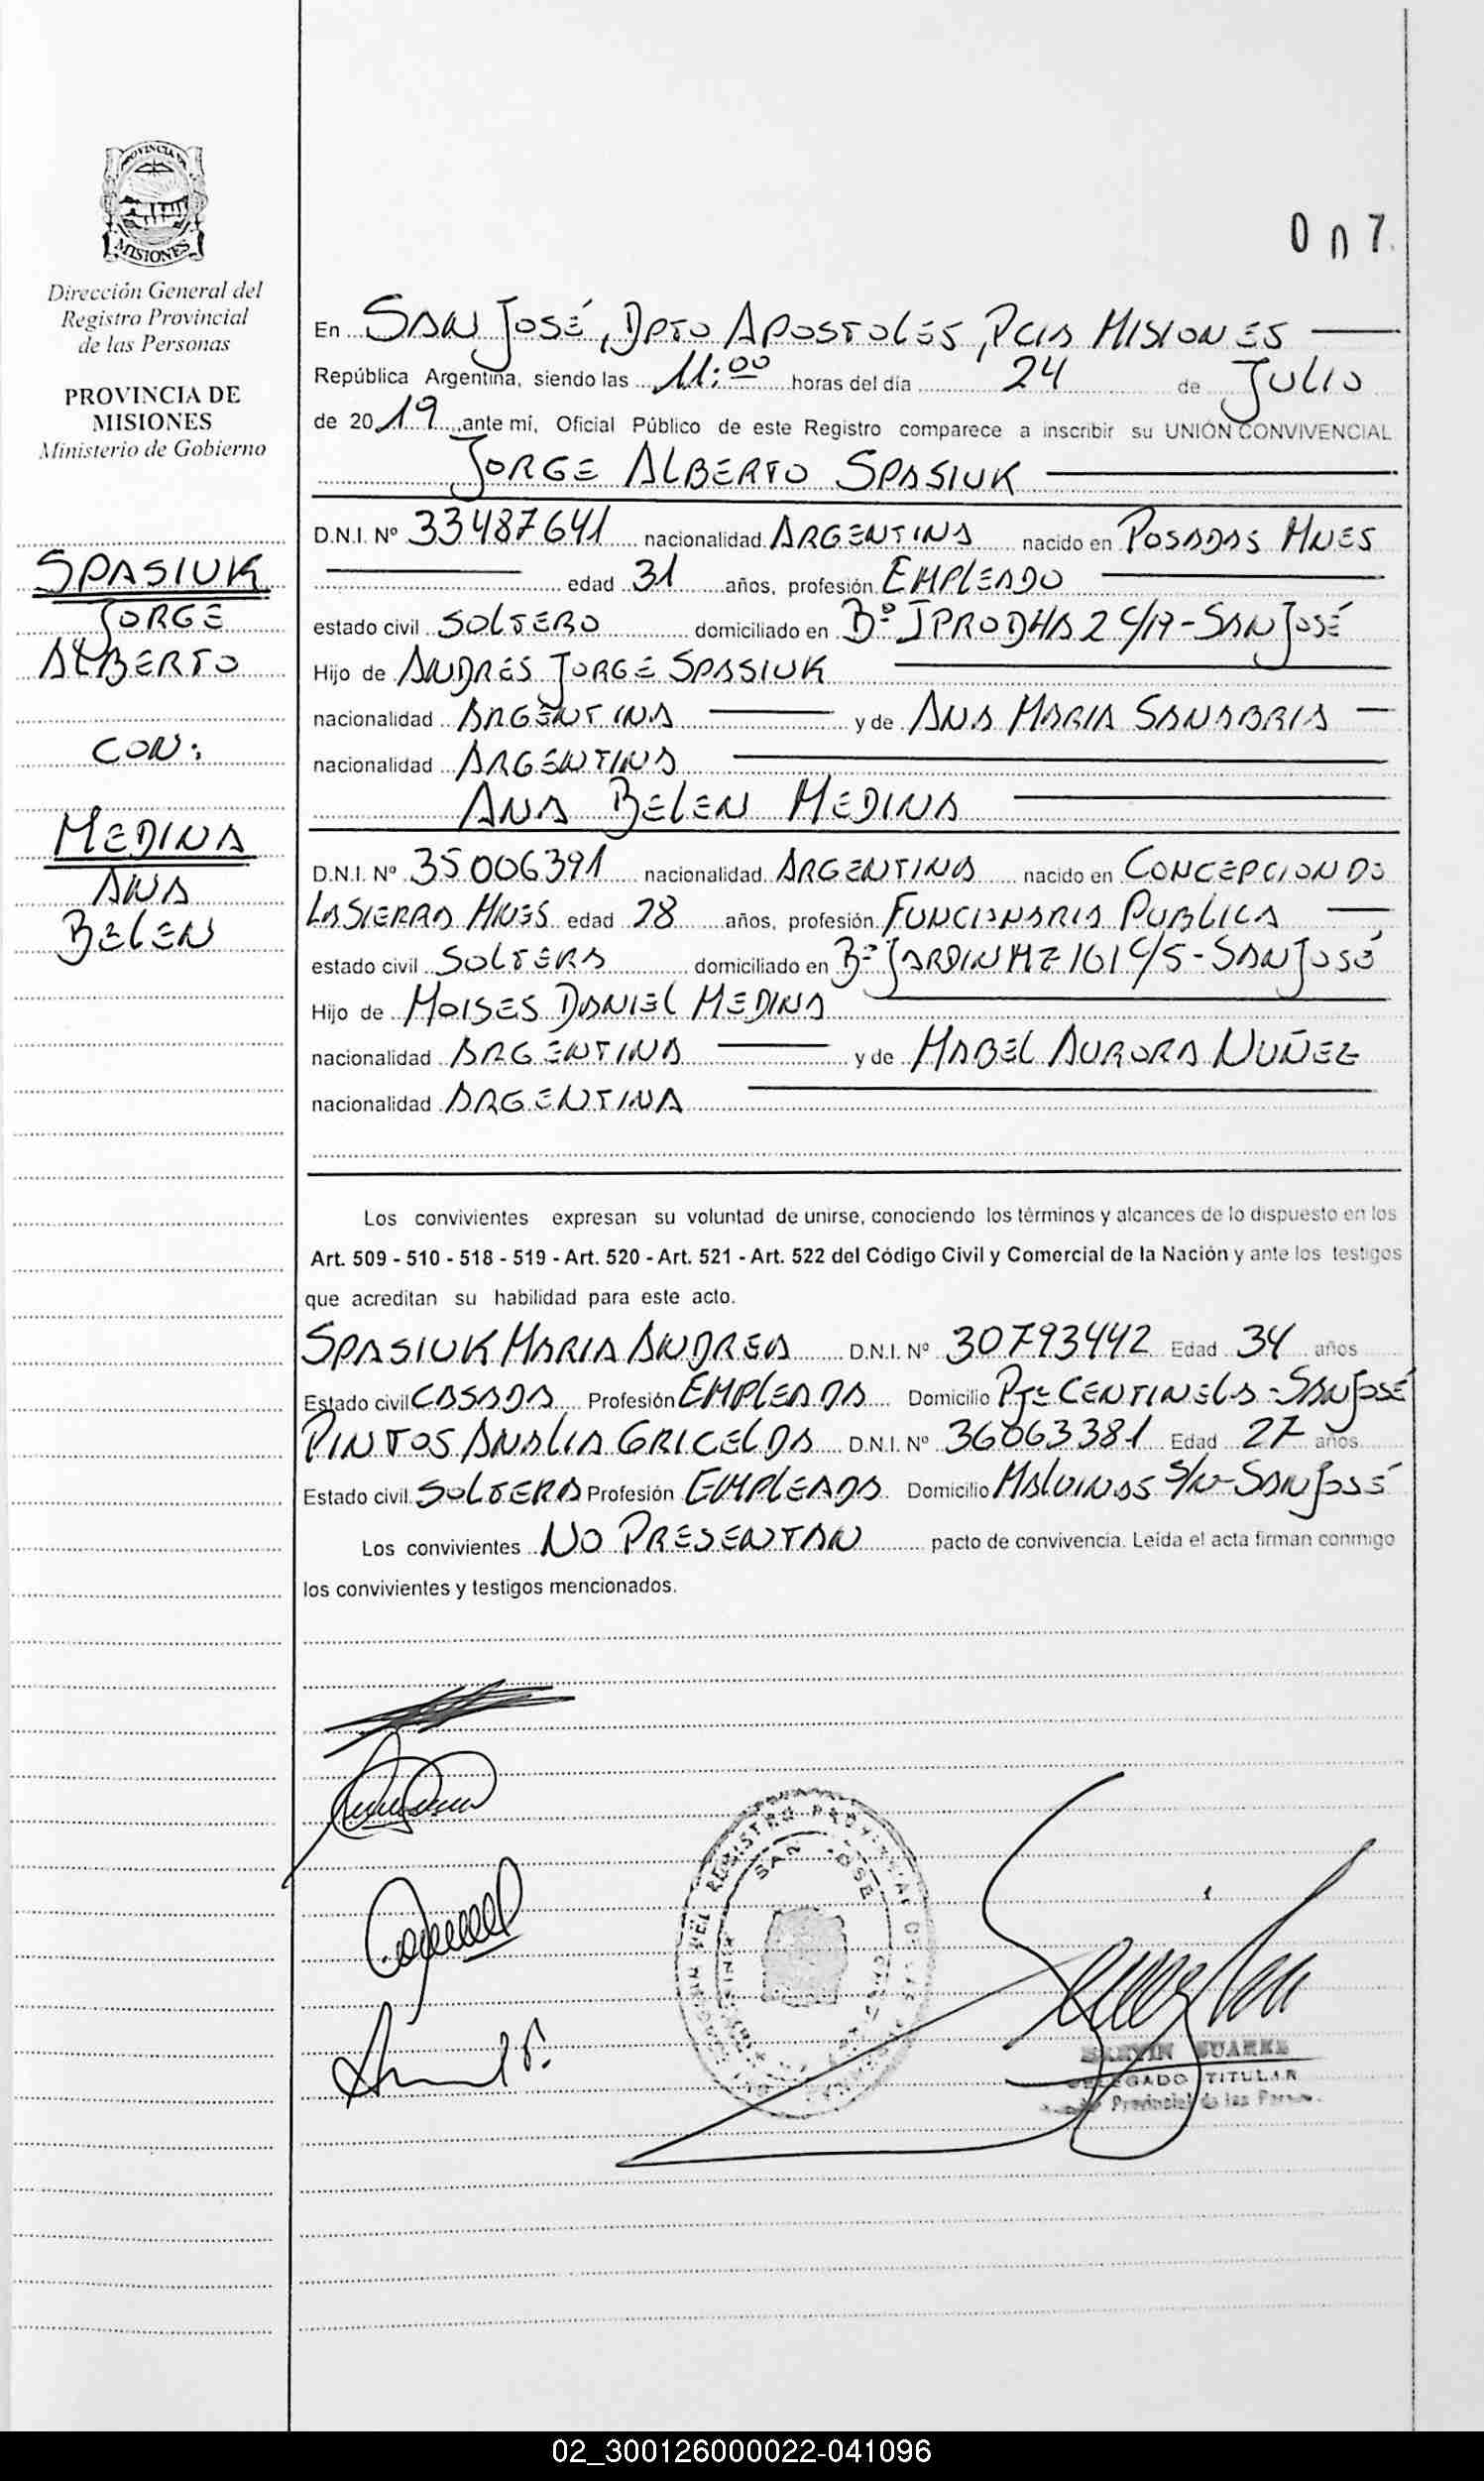 PROVINCIA DE
MISIONES
Dirección General del
Registro Provincial
de las Personas
PROVINCIA DE
MISIONES
Ministerio de Gobierno
SPASIUK
JORGE
ALBERTO
CON:
MEDINA
ANA
BELEN
007
En SAN JOSÉ, DPTO APOSTOLES, PCIA MISIONES
República Argentina, siendo las 11:00 horas del día 24 de JULIO
de 2019 ante mí, Oficial Público de este Registro comparece a inscribir su UNIÓN CONVIVENCIAL
JORGE ALBERTO SPASIUK
D.N.I. Nº 33487641 nacionalidad ARGENTINA nacido en POSADAS MNES
edad 31 años, profesión EMPLEADO
estado civil SOLTERO domiciliado en Bº IPRODHA 2 C/19 - SAN JOSÉ
Hijo de ANDRES JORGE SPASIUK
nacionalidad ARGENTINA y de ANA MARIA SANABRIA
nacionalidad ARGENTINA
ANA BELEN MEDINA
D.N.I. Nº 35006391 nacionalidad ARGENTINA nacido en CONCEPCION DE
LA SIERRA MNES edad 28 años, profesión FUNCIONARIA PUBLICA
estado civil SOLTERA domiciliado en Bº JARDIN MZ 161 C/5 - SAN JOSÉ
Hijo de MOISES DANIEL MEDINA
nacionalidad ARGENTINA y de MABEL AURORA NUÑEZ
nacionalidad ARGENTINA
Los convivientes expresan su voluntad de unirse, conociendo los términos y alcances de lo dispuesto en los
Art. 509 - 510 - 518 - 519 - Art. 520 - Art. 521 - Art. 522 del Código Civil y Comercial de la Nación y ante los testigos
que acreditan su habilidad para este acto.
SPASIUK MARIA ANDREA D.N.I. Nº 30793442 Edad 34 años
Estado civil CASADA Profesión EMPLEADA Domicilio PJE CENTINELA - SAN JOSÉ
PINTOS ANALIA GRICELDA D.N.I. Nº 36063381 Edad 27 años
Estado civil SOLTERA Profesión EMPLEADA Domicilio MALVINAS S/N - SAN JOSÉ
Los convivientes NO PRESENTAN pacto de convivencia. Leída el acta firman conmigo
los convivientes y testigos mencionados.
SAN JOSE
SUAREZ
DELEGADO TITULAR
Provincial de las Person
02_300126000022-041096